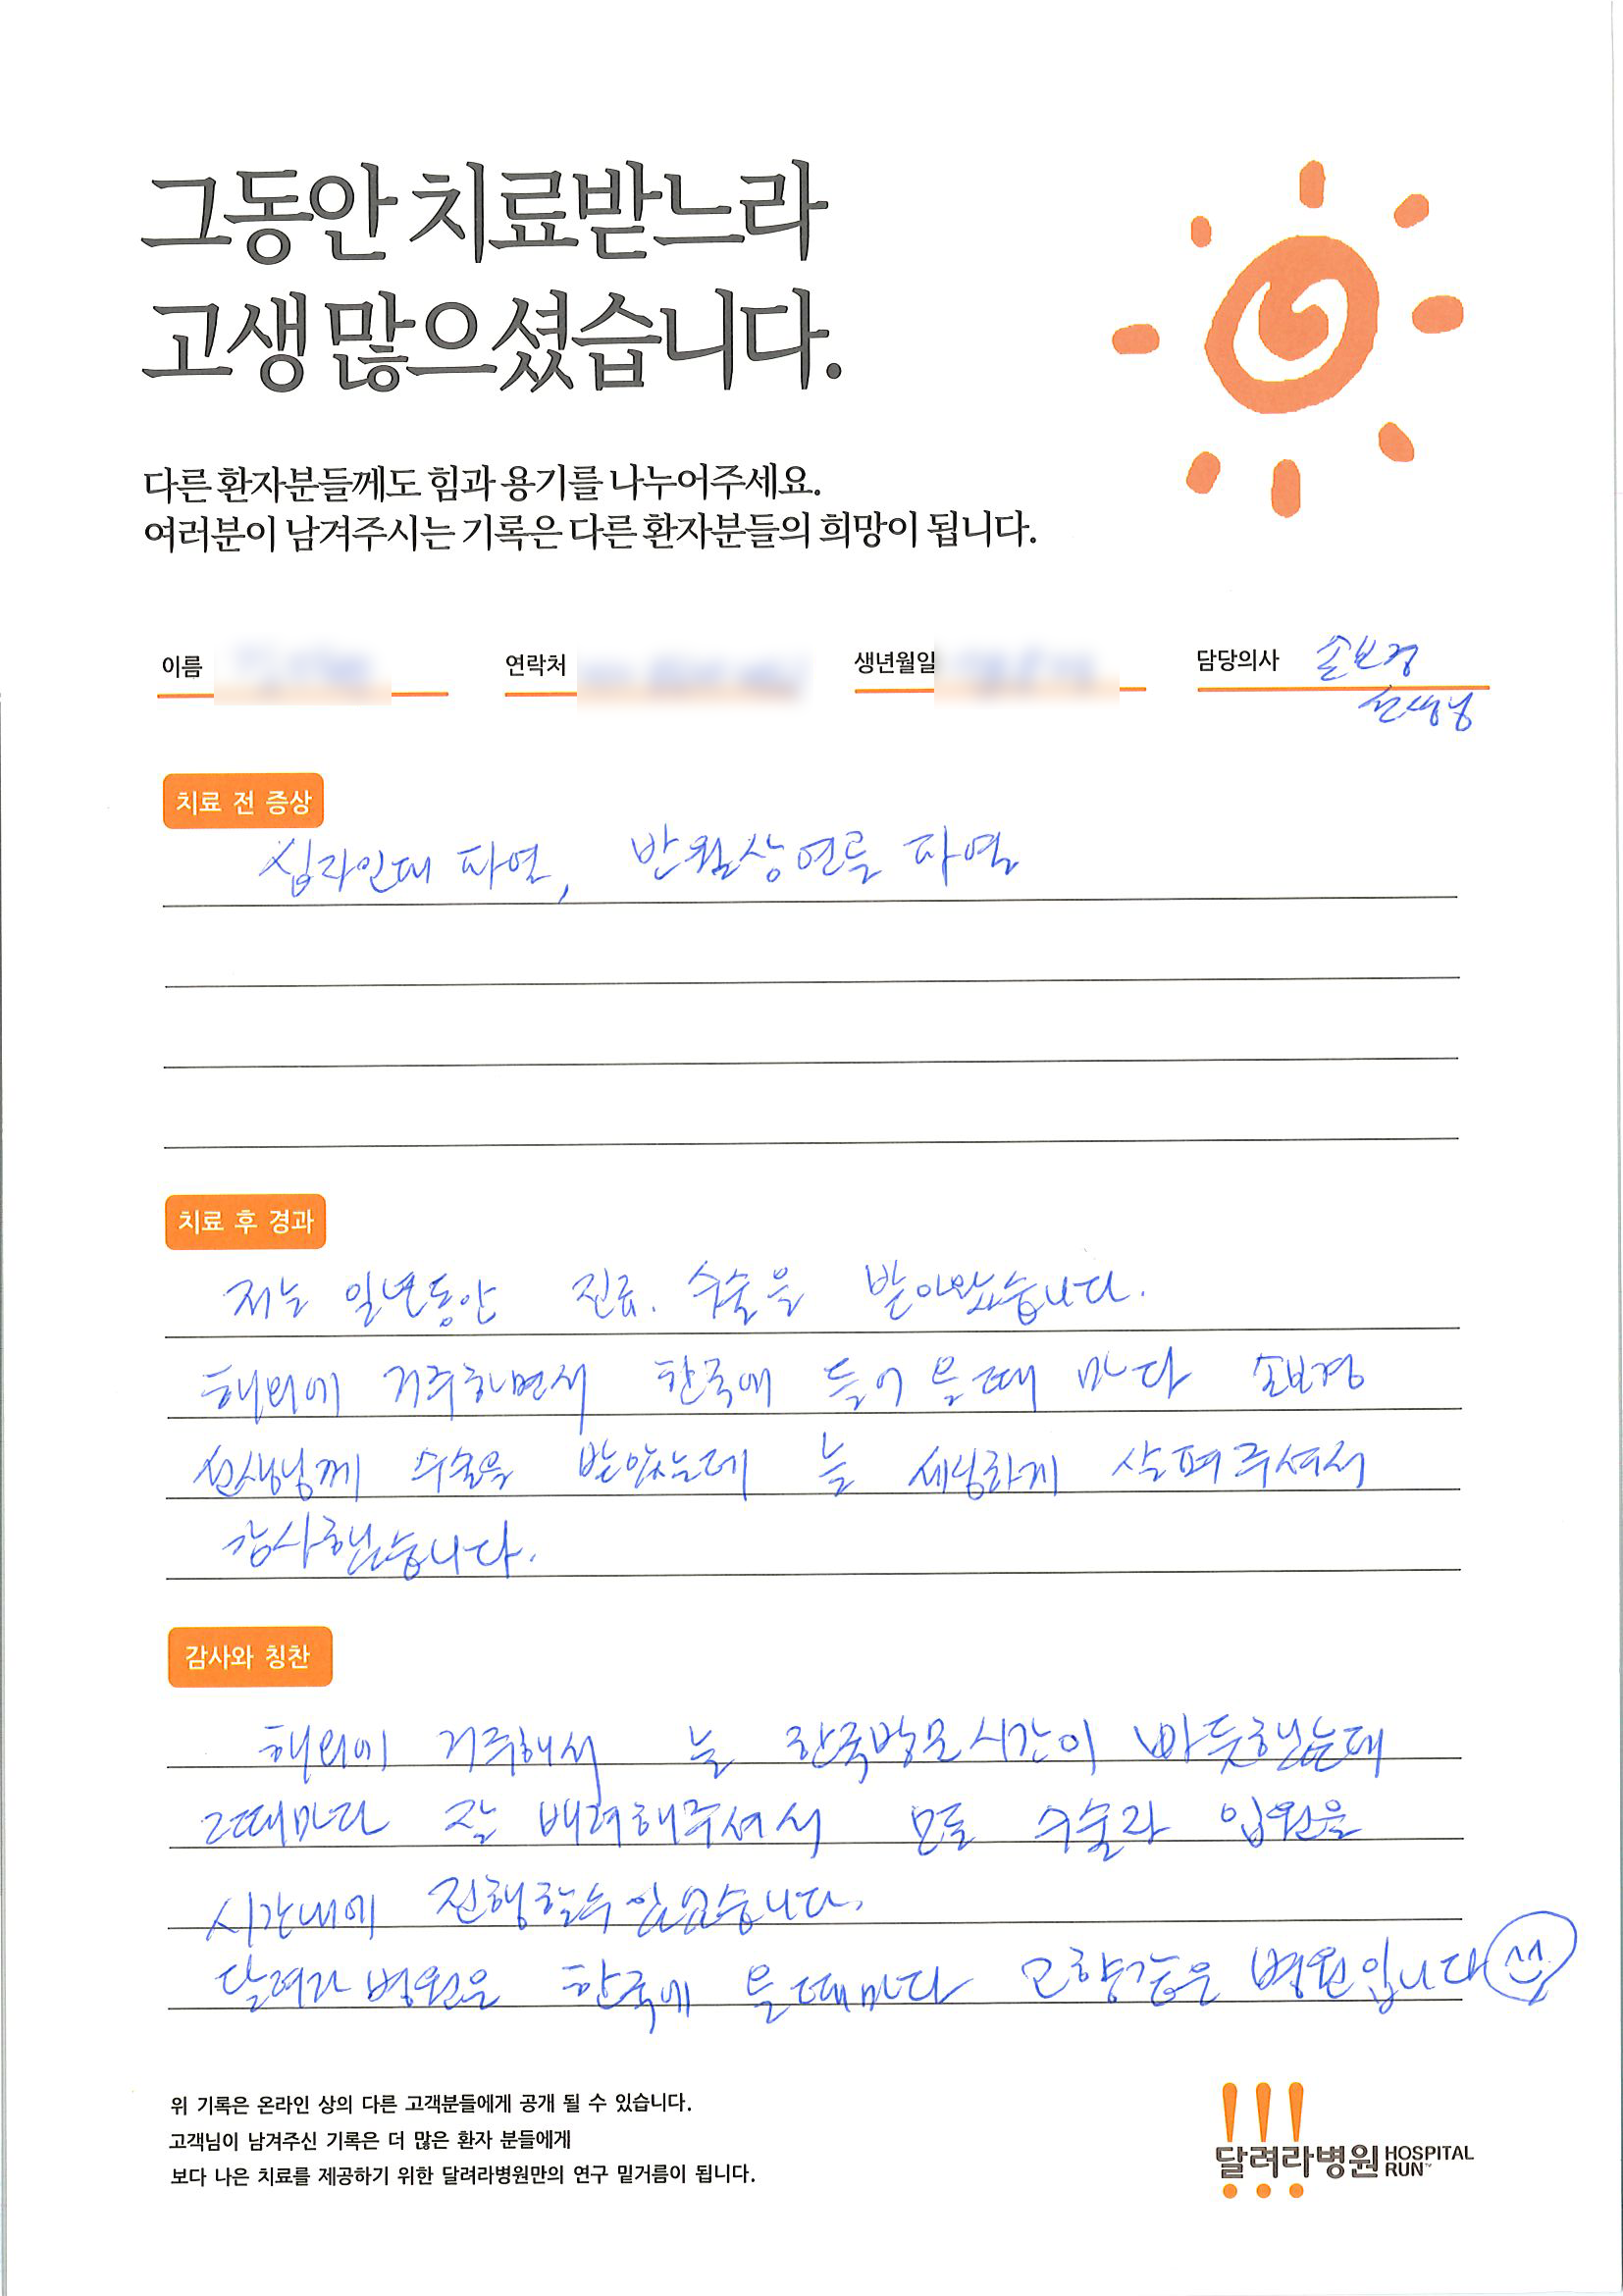 그동안 치료받느라
고생 많으셨습니다.
다른 환자분들께도 힘과 용기를 나누어주세요.
여러분이 남겨주시는 기록은 다른 환자분들의 희망이 됩니다.
이름 연락처 생년월일 담당의사 손보경
선생님
치료 전 증상
십자인대 파열, 반월상연골 파열
치료 후 경과
저는 일년동안 진료. 수술을 받아왔습니다.
해외에 거주하면서 한국에 들어 올때 마다 손보경
선생님께 수술을 받았는데 늘 세심하게 살펴주셔서
감사했습니다.
감사와 칭찬
해외에 거주해서 늘 한국방문시간이 빠듯했는데
그때마다 잘 배려해주셔서 모든 수술과 입원을
시간내에 진행할수 있었습니다.
달려라병원은 한국에 올때마다 고향같은 병원입니다
위 기록은 온라인 상의 다른 고객분들에게 공개 될 수 있습니다.
고객님이 남겨주신 기록은 더 많은 환자 분들에게
보다 나은 치료를 제공하기 위한 달려라병원만의 연구 밑거름이 됩니다.
달려라병원 HOSPITAL
RUN™